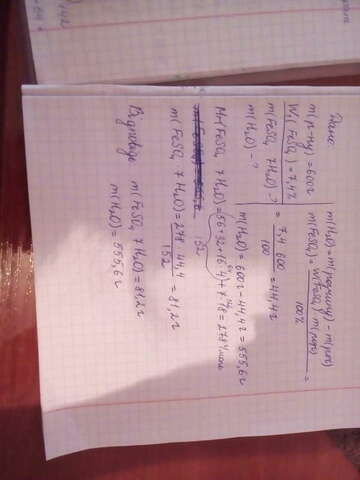 Дано:
m(р-ну) = 600г
W₁(FeSO₄) = 7,4%
m(FeSO₄ · 7H₂O) - ?
m(H₂O) - ?
m(H₂O) = m(розчину) - m(реч)
m(FeSO₄) = w(FeSO₄) · m(розч) / 100% =
= 7,4 · 600 / 100 = 44,4г
m(H₂O) = 600г - 44,4г = 555,6г
Mr(FeSO₄ · 7H₂O) = (56+32+16·4) + 7·18 = 278 г/моль
152
m(FeSO₄ · 7H₂O) = 278 · 44,4 / 152 = 81,2г
Відповідь m(FeSO₄ · 7H₂O) = 81,2г
m(H₂O) = 555,6г